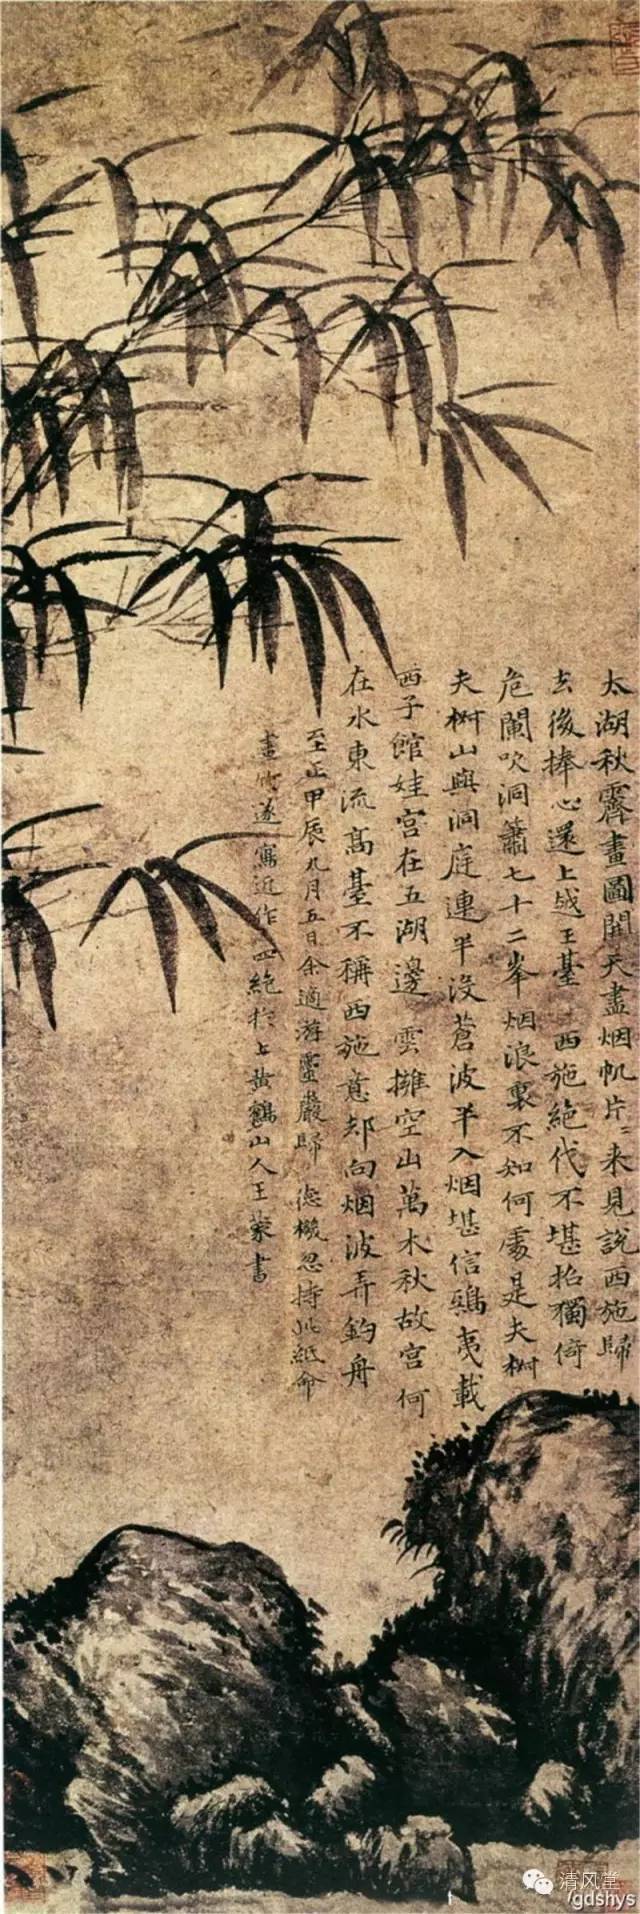 太湖秋霽畫圖開天盡烟帆片〻来見說西施歸
去後捧心還上越王臺 西施絕代不堪招獨倚
危闌吹洞簫七十二峯烟浪裏不知何處是夫椒
夫椒山與洞庭連半没蒼波半入烟堪信鴟夷載
西子館娃宮在五湖邊 雲擁空山萬木秋故宮何
在水東流高臺不稱西施意却向烟波弄釣舟
至正甲辰九月五日余適游靈巖歸 德機忽持此紙命
畫竹遂寫近作四絕於上黄鶴山人王蒙書
清风堂
/gdshys